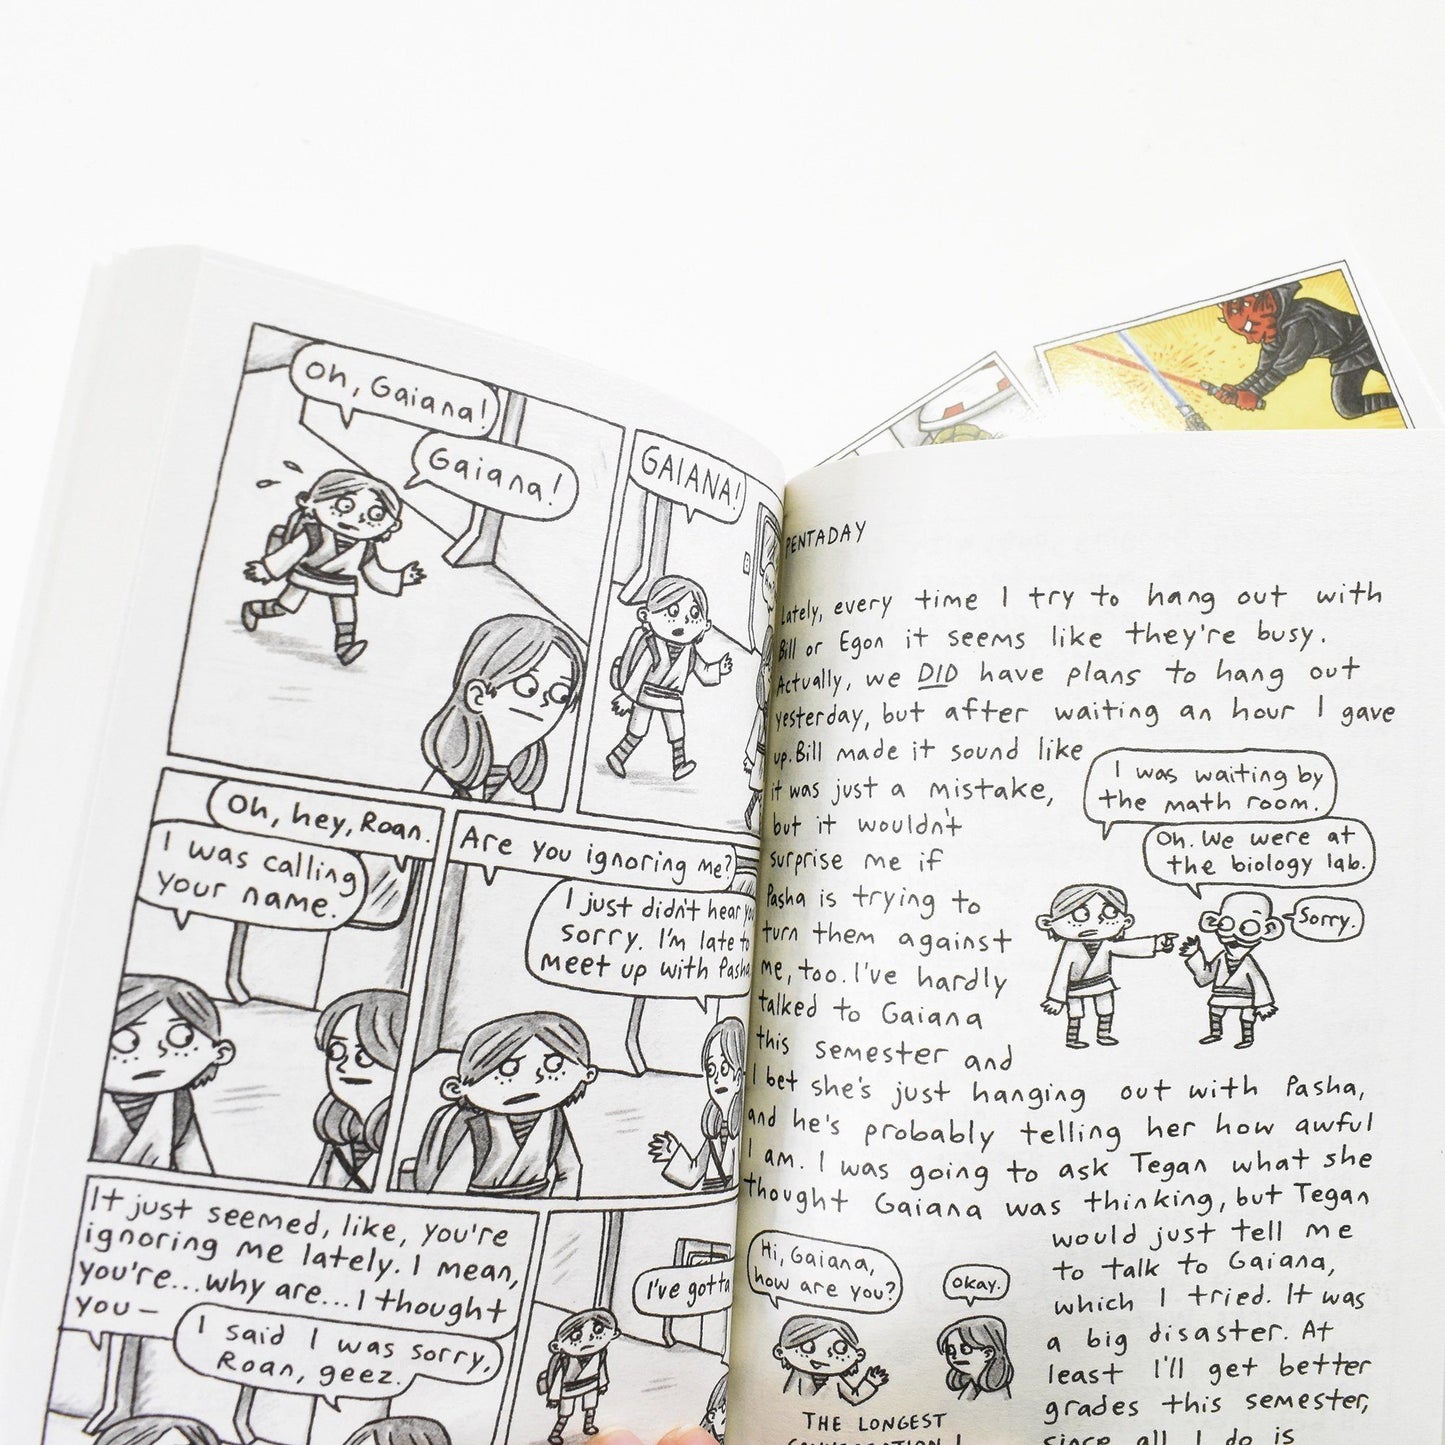 Oh, Gaiana!
Gaiana!
GAIANA!
Oh, hey, Roan.
I was calling
your name.
Are you ignoring me?
I just didn't hear
sorry. I'm late to
meet up with Pasha
It just seemed, like, you're
ignoring me lately. I mean,
you're...why are...I thought
you—
I said I was sorry,
Roan, geez.
I've gotta
PENTADAY
Lately, every time I try to hang out with
Bill or Egon it seems like they're busy.
Actually, we DID have plans to hang out
yesterday, but after waiting an hour I gave
up. Bill made it sound like
it was just a mistake,
but it wouldn't
surprise me if
Pasha is trying to
turn them against
me, too. I've hardly
talked to Gaiana
this semester and
I bet she's just hanging out with Pasha,
and he's probably telling her how awful
I am. I was going to ask Tegan what she
thought Gaiana was thinking, but Tegan
would just tell me
to talk to Gaiana,
which I tried. It was
a big disaster. At
least I'll get better
grades this semester,
since all I do is
I was waiting by
the math room.
Oh. We were at
the biology lab.
Sorry.
Hi, Gaiana,
how are you?
Okay.
THE LONGEST
CONVERSATION!